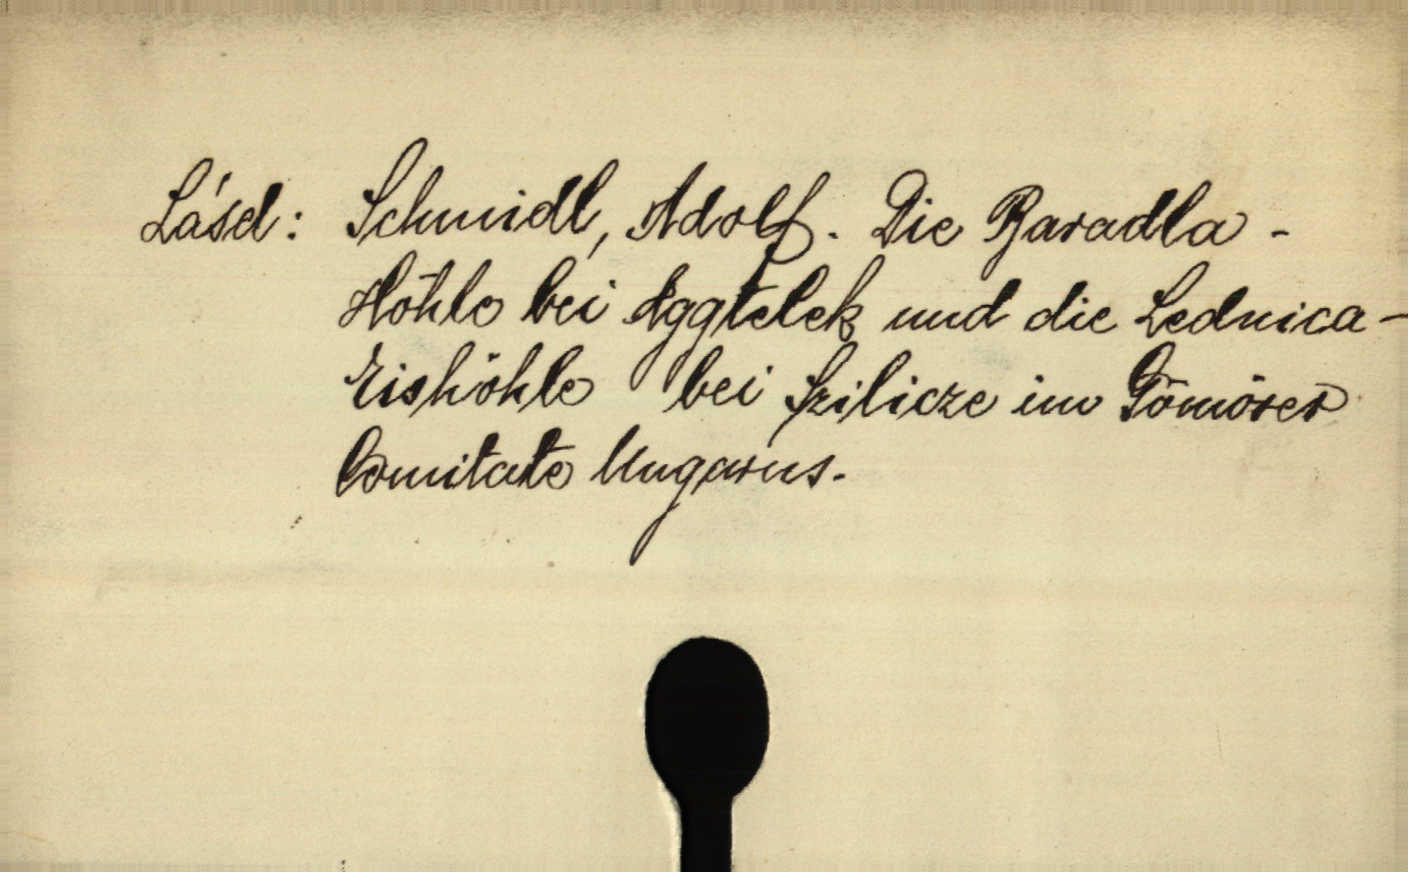 Lásd: Schmidl, Adolf. Die Baradla-
Höhle bei Aggtelek und die Lednica-
Eishöhle bei Szilicze im Gömörer
Comitate Ungarns.